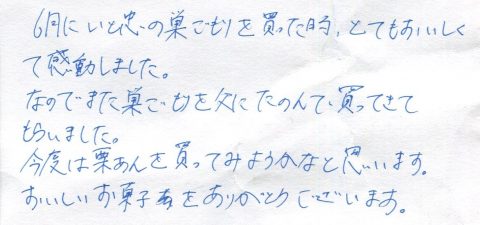 6月にいと忠の巣ごもりを買った時、とてもおいしく
て感動しました。
なのでまた巣ごもりを父にたのんで買ってきて
もらいました。
今度は栗あんを買ってみようかなと思います。
おいしいお菓子をありがとうございます。